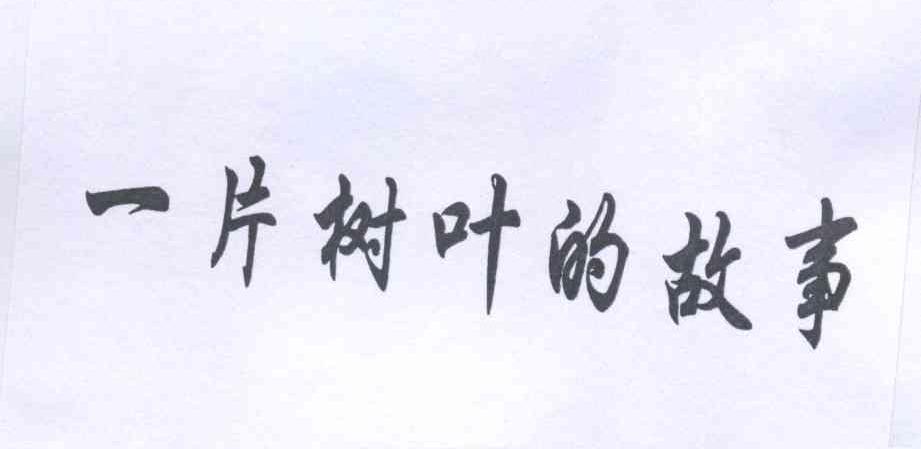 一片树叶的故事